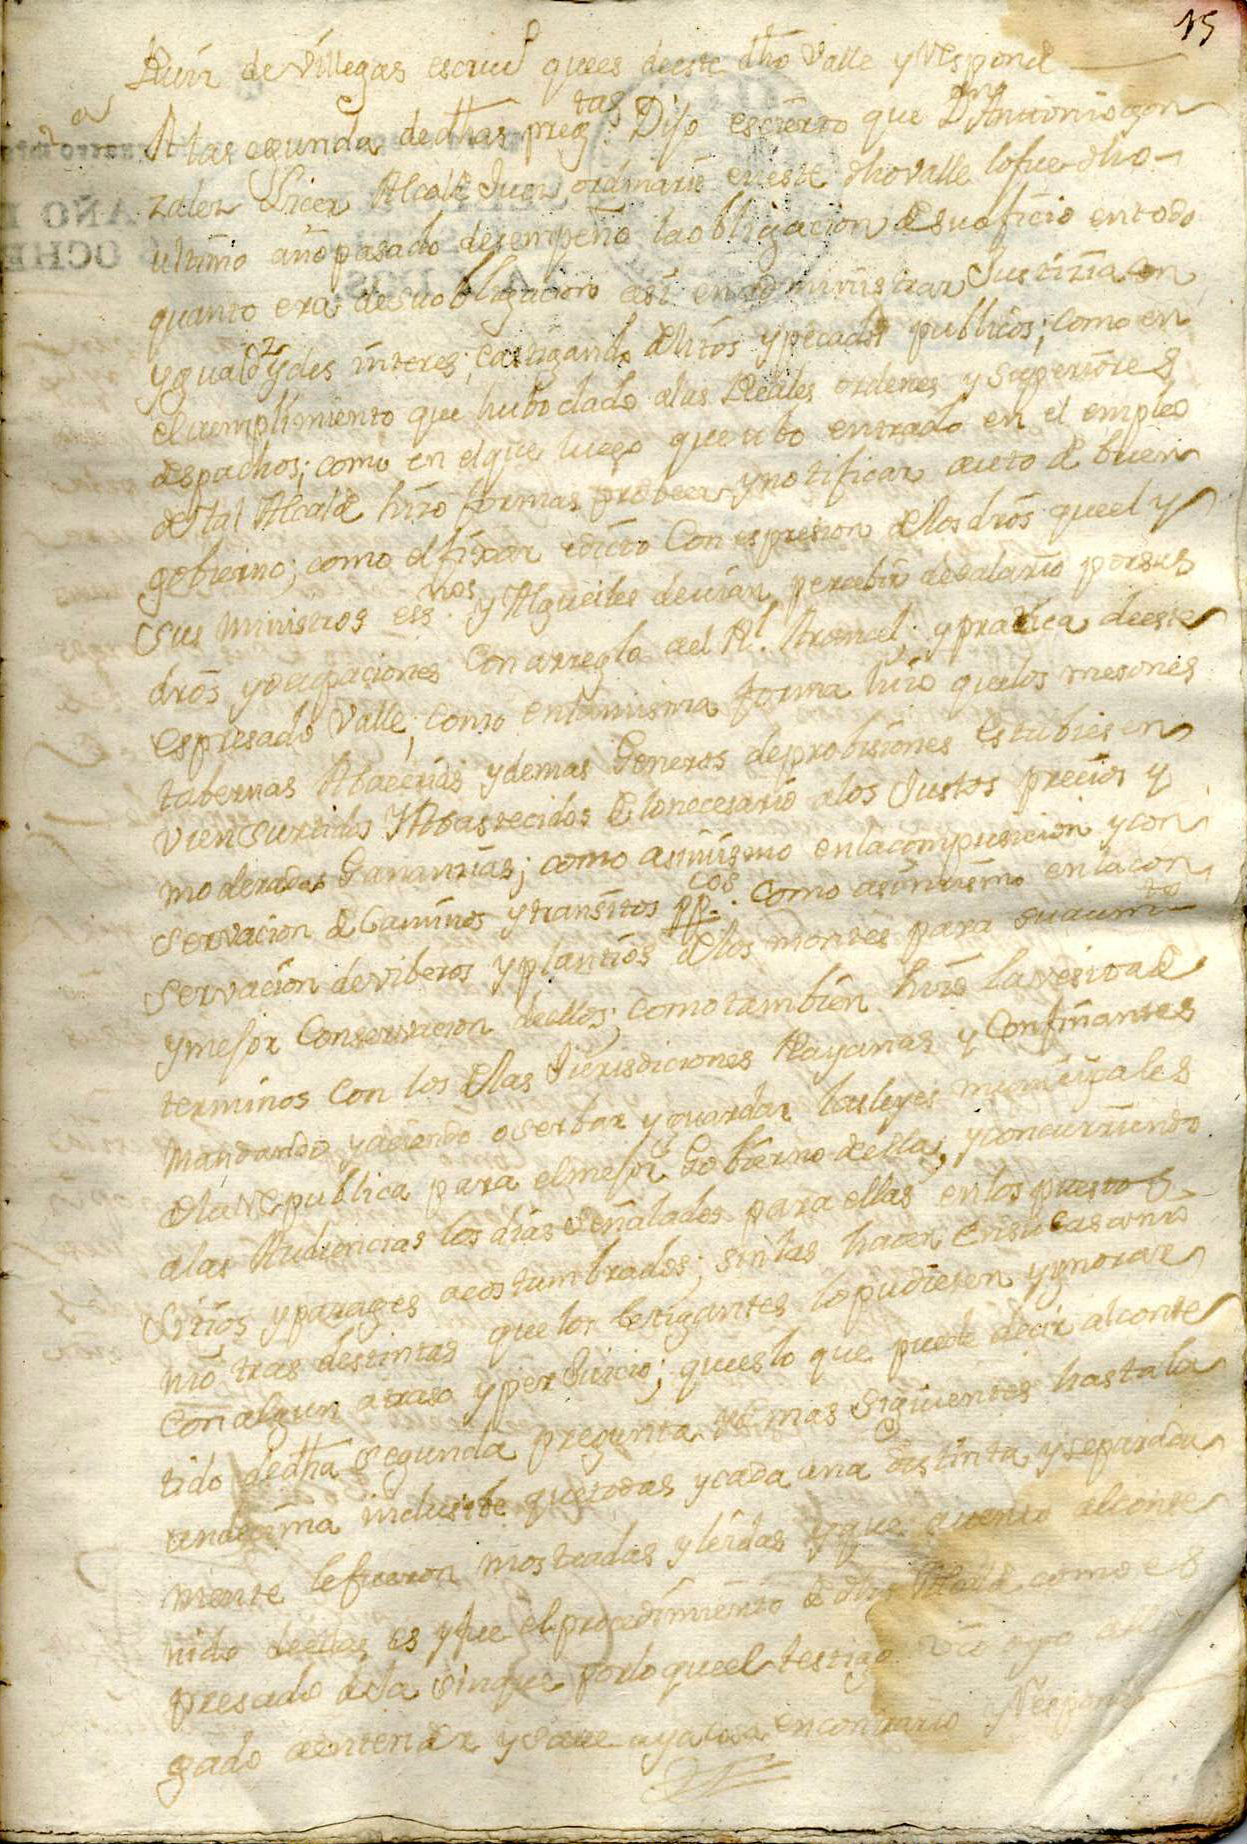 15
Ruiz de Villegas escriv.º que es de este dho Valle y Respond.e
2.a A la segunda de dhas preg.tas Dijo es cierto que D.n Antonio gon
zalez Alcalde Juez ordinario en este dho valle lo fue dho
ultimo año pasado desempeño la obligacion de su oficio en todo
quanto era de su obligacion asi en administrar Justizia con
ygual.d y des interes; castigando delitos y pecados publicos; como en
el cumplimiento que hubo dado a las Reales ordenes y superiores
despachos; como en el que luego que ubo entrado en el empleo
de tal Alcalde hizo formar probeer y notificar auto de buen
gobierno; como el fixar edicto Con espresion de los dros que el y
sus ministros ess.nos y Alguciles devian percebir de salario por sus
dros y ocupaciones Con arreglo a el R.l Aranzel y practica de este
espresado Valle; como en la misma forma hizo que los mesones
tabernas Abacerias y demas Generos de probisiones estubiesen
vien surtidos Y Abastecidos de lo necesario a los Justos precios y
moderadas Ganancias; como asimismo en la composicion y con
servacion de Caminos y transitos pp.cos como asimismo en la con
servacion de viberos y plantios de los montes para su aum.to
y mejor Conservacion de ellos; como tambien hizo la vesita de
terminos con los de las Jurisdiciones Rayanas y Confinantes
mandando y aciendo oserbar y guardar las leyes municipales
de la Republica para el mejor Gobierno de ella; y concurriendo
a las Audiencias los dias señalados para ellas en los puestos
sitios y parages acostumbrados; sin las hacer en su casa ni
ni otras destintas que los letigantes lo pudiesen ygnorar
Con algun atraso y perJuicio; que es lo que puede decir al conte
tido de dha segunda pregunta y demas siguientes hasta la
undecima inclusibe que todas y cada una distinta y separada
mente le fueron mostradas y leidas y que quento al conte
nido de ellas es y fue el procedimiento de dho Alcalde como es
presado deja sin que por lo que el testigo vio oyo
gado a entender y save aya cosa en contrario Y Respond.e